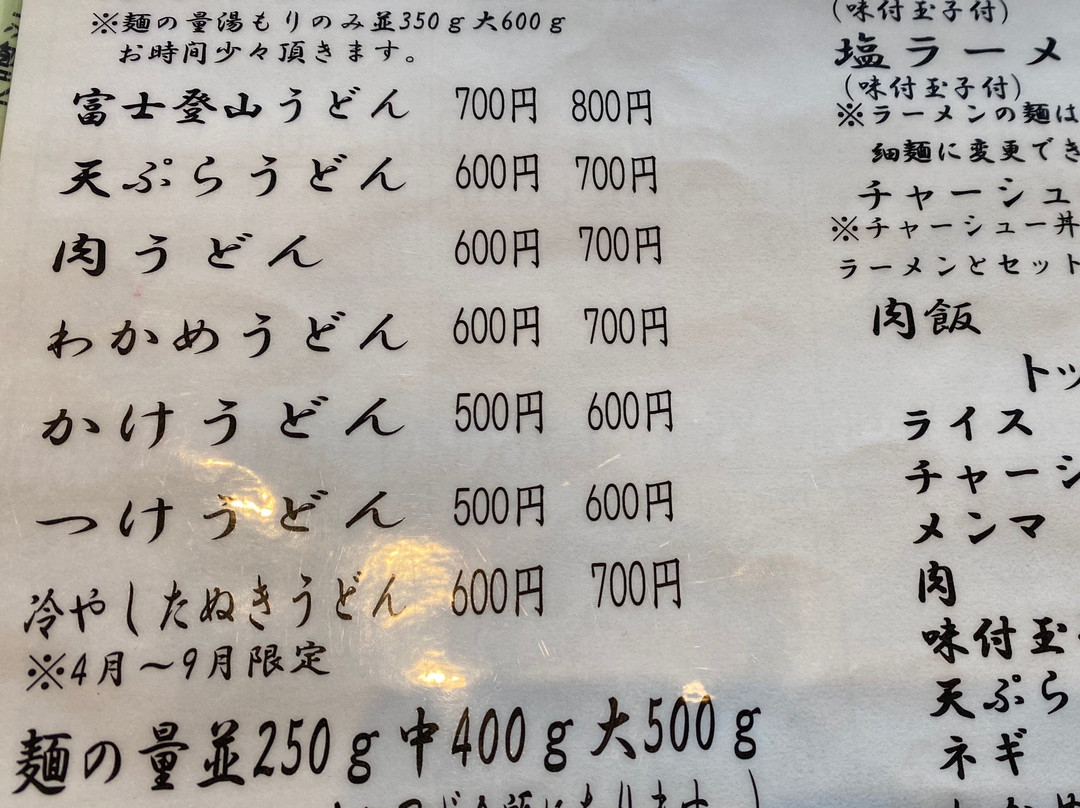 ※麺の量湯もりのみ並350g大600g
お時間少々頂きます。
富士登山うどん 700円 800円
天ぷらうどん 600円 700円
肉うどん 600円 700円
わかめうどん 600円 700円
かけうどん 500円 600円
つけうどん 500円 600円
冷やしたぬきうどん 600円 700円
※4月～9月限定
麺の量並250g中400g大500g
(味付玉子付)
塩ラーメ
(味付玉子付)
※ラーメンの麺は
細麺に変更でき
チャーシュ
※チャーシュー丼
ラーメンとセット
肉飯
トッ
ライス
チャーシ
メンマ
肉
味付玉
天ぷら
ネギ